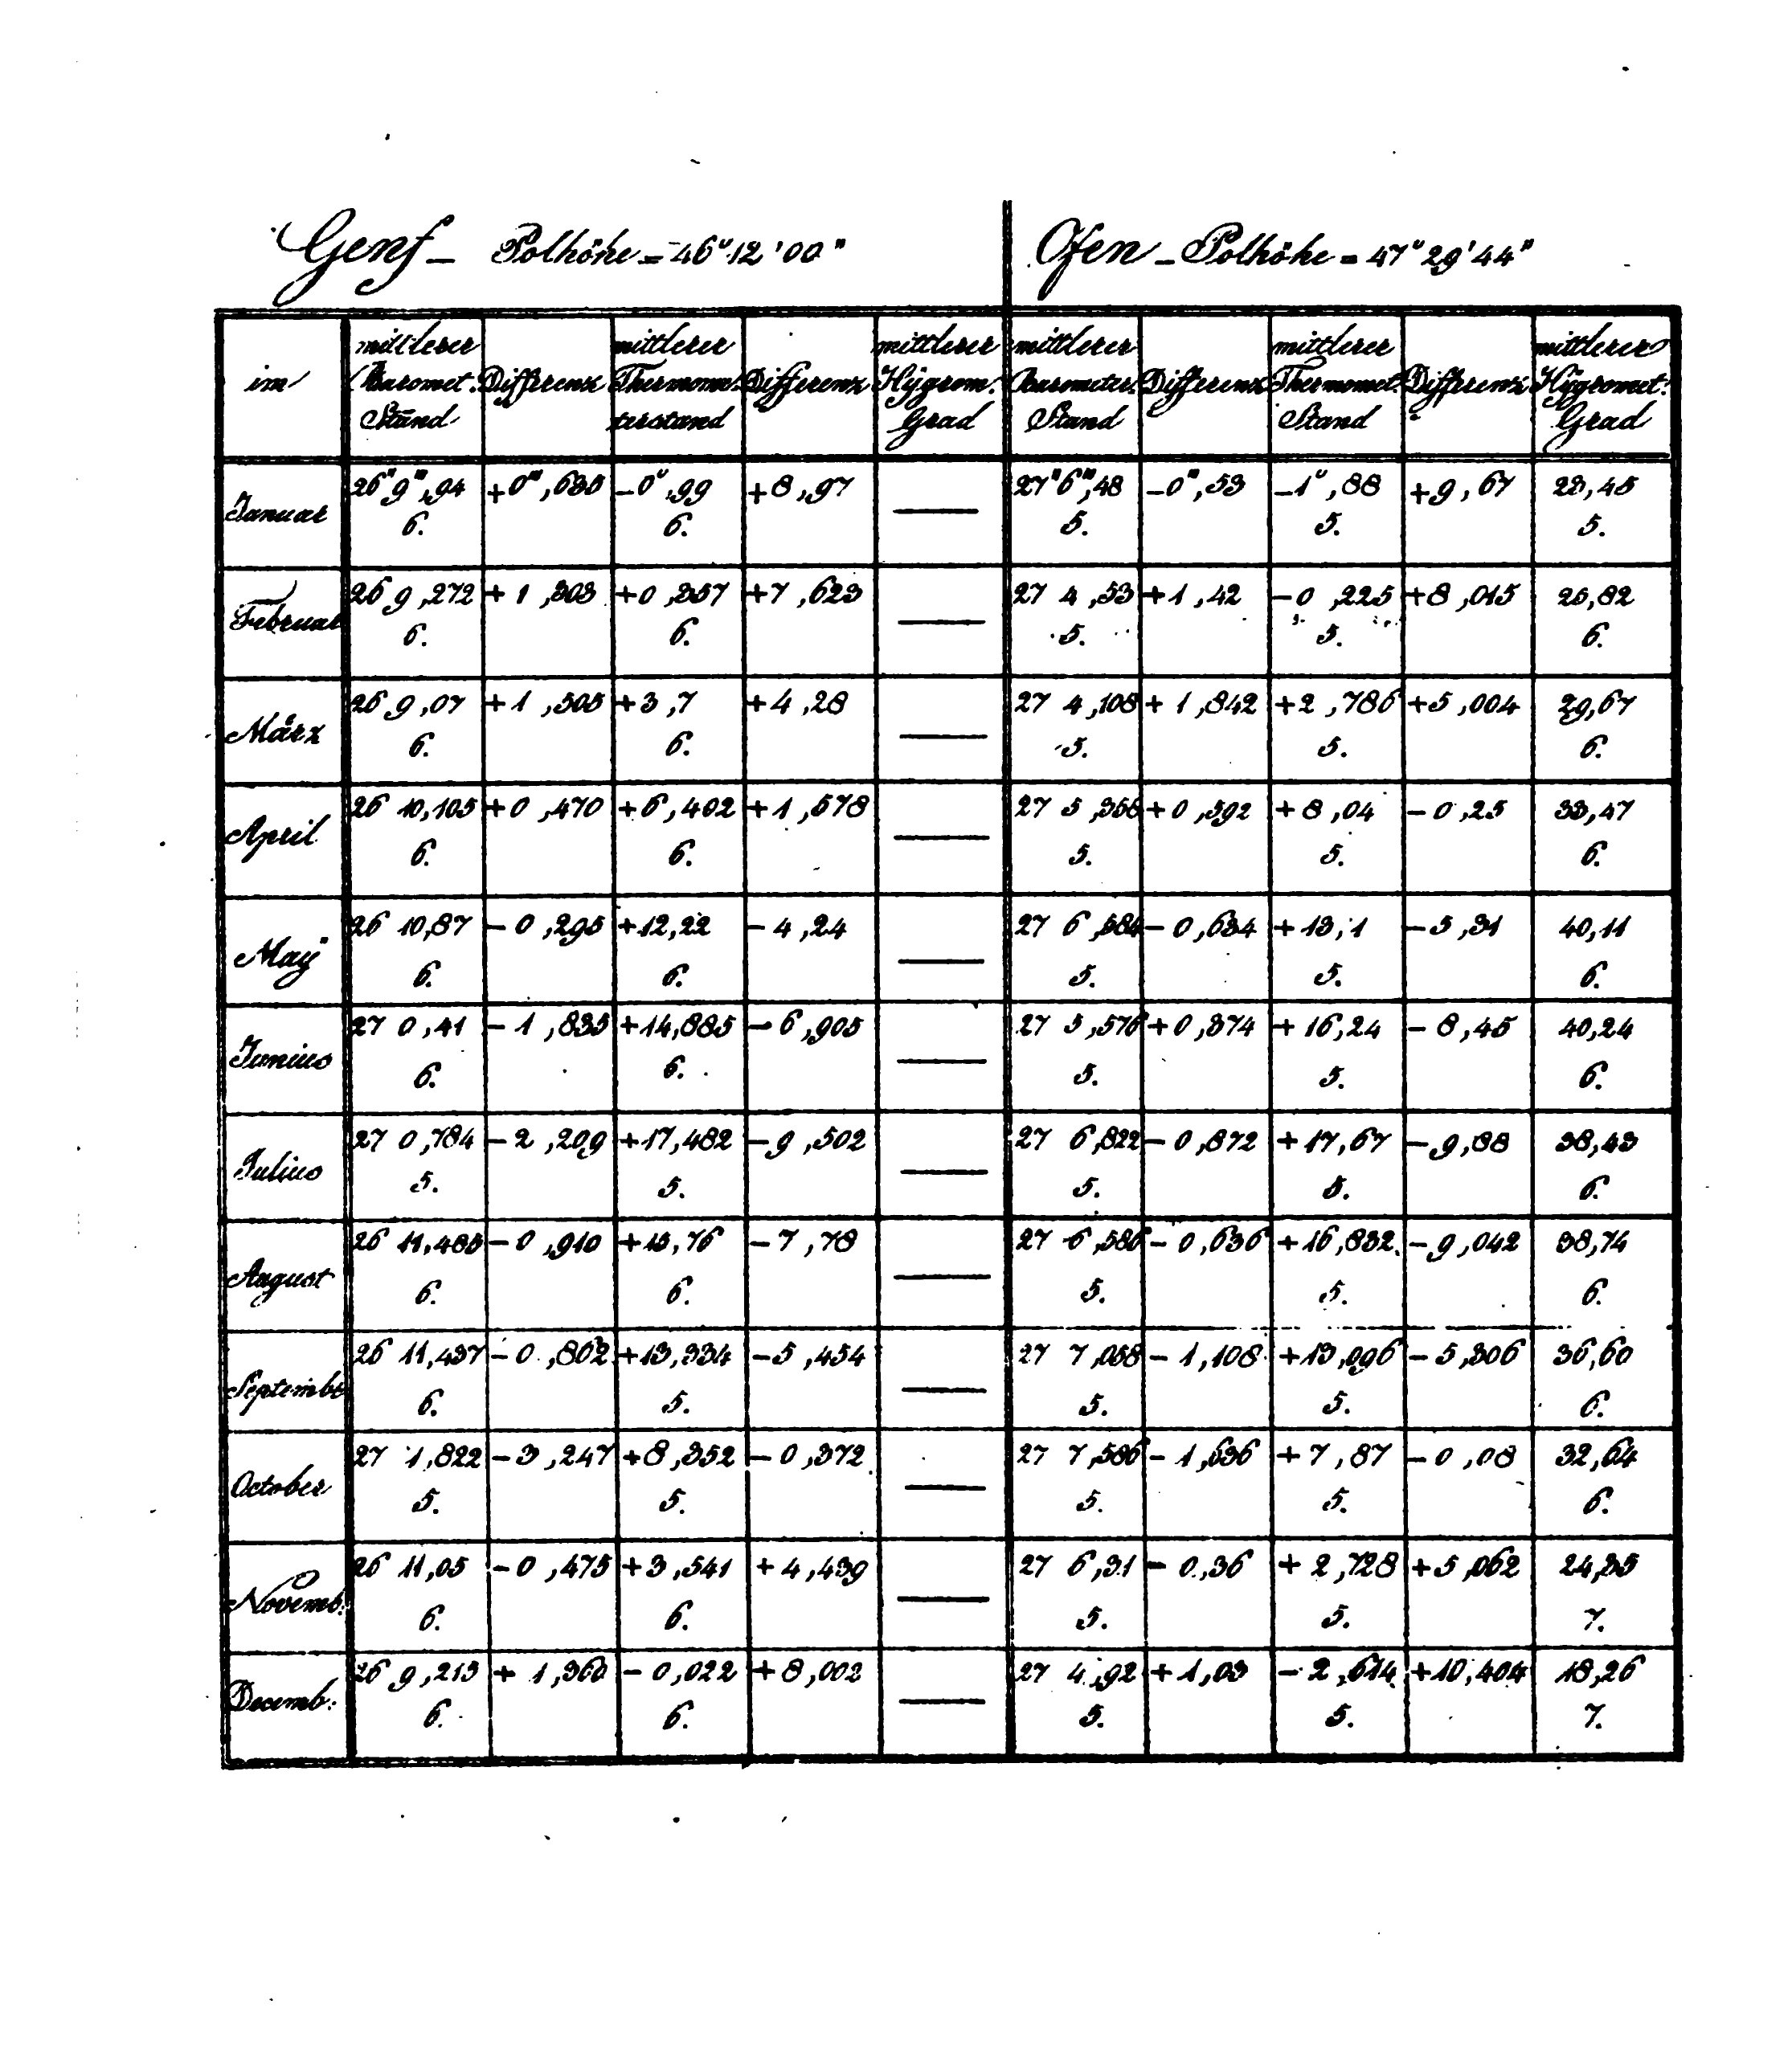 Genf – Polhöhe = 46° 12' 00"
Ofen – Polhöhe = 47° 29' 44"
im mittlerer Baromet: Stand Differenz mittlerer Thermome- terstand Differenz mittlerer Hÿgrom: Grad mittlerer Barometer- Stand Differenz mittlerer Thermomet: Stand Differenz mittlerer Hÿgromet: Grad
Januar 26" 9"',94 +0"',635 -0°,99 +8,97 — 27" 6"',48 -0",53 -1°,88 +9,67 23,45
6. 6. 5. 5. 5.
Februar 26 9,272 +1,303 +0,357 +7,623 — 27 4,53 +1,42 -0,225 +8,015 26,82
6. 6. 5. 5. 6.
März 26 9,07 +1,505 +3,7 +4,28 — 27 4,108 +1,842 +2,786 +5,004 29,67
6. 6. 5. 5. 6.
April 26 10,105 +0,470 +6,402 +1,578 — 27 5,358 +0,592 +8,04 -0,25 33,47
6. 6. 5. 5. 6.
Maÿ 26 10,87 -0,295 +12,22 -4,24 — 27 6,584 -0,634 +13,1 -5,31 40,11
6. 6. 5. 5. 6.
Junius 27 0,41 -1,835 +14,885 -6,905 — 27 5,576 +0,374 +16,24 -8,45 40,24
6. 6. 5. 5. 6.
Julius 27 0,784 -2,209 +17,482 -9,502 — 27 6,822 -0,872 +17,67 -9,88 38,43
5. 5. 5. 5. 6.
August 26 11,485 -0,910 +15,76 -7,78 — 27 6,586 -0,636 +16,832 -9,042 38,74
6. 6. 5. 5. 6.
Septembr 26 11,437 -0,862 +13,334 -5,454 — 27 7,058 -1,108 +13,096 -5,306 36,60
6. 5. 5. 5. 6.
October 27 1,822 -3,247 +8,352 -0,372 — 27 7,586 -1,636 +7,87 -0,08 32,64
5. 5. 5. 5. 6.
Novemb: 26 11,05 -0,475 +3,541 +4,439 — 27 6,31 -0,36 +2,728 +5,062 24,35
6. 6. 5. 5. 7.
Decemb: 26 9,213 +1,360 -0,022 +8,002 — 27 4,92 +1,03 -2,614 +10,404 18,26
6. 6. 5. 5. 7.